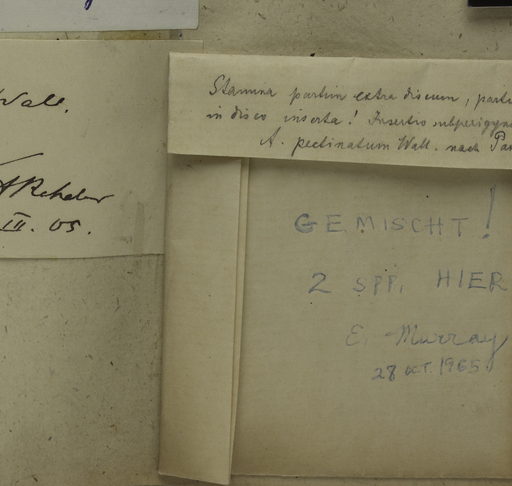 Wall.
A Rehder
III. 05.
Stamina partim extra discum, parti
in disco inserta! Insertio subperigyn
A. pectinatum Wall. nach Pa
GEMISCHT!
2 SPP. HIER
E. Murray
28 OCT. 1965